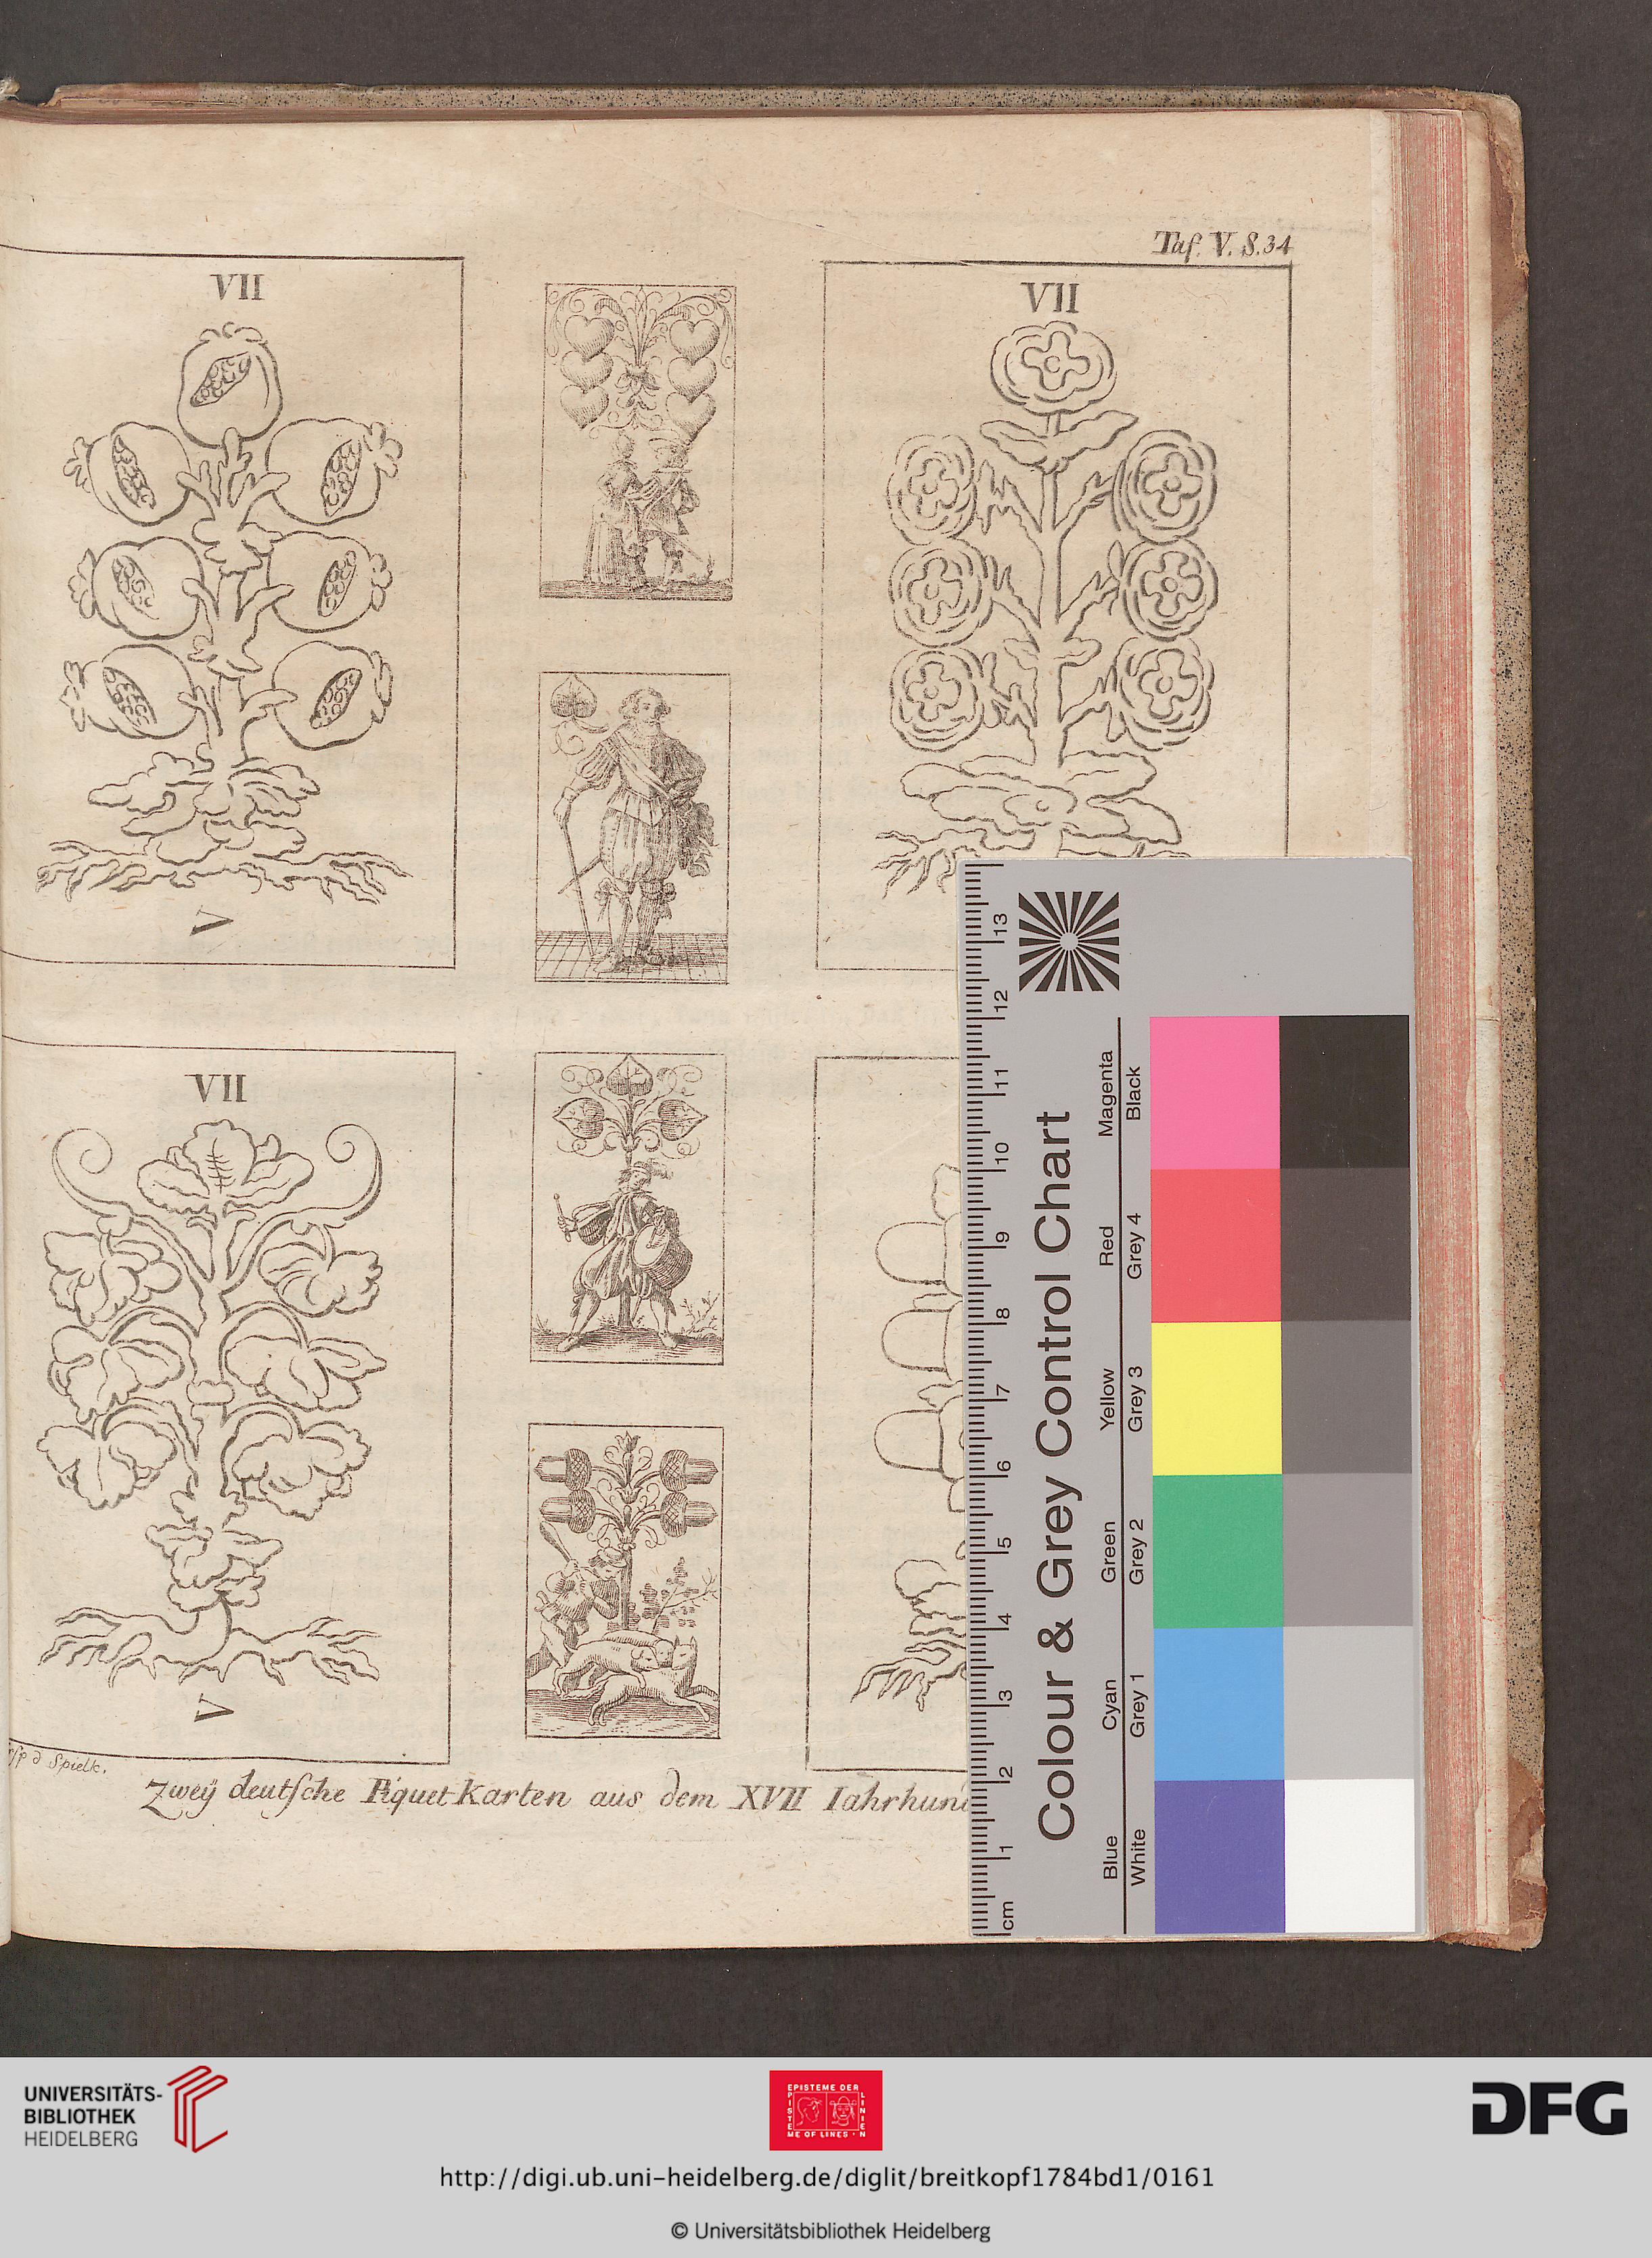 Taf. V. S. 34
VII
VII
V
VII
V
d Spielk.
Zweÿ deutſche Piquet Karten aus dem XVII Iahrhun
13
12
11
10
9
8
7
6
5
4
3
2
1
cm
Colour & Grey Control Chart
Blue Cyan Green Yellow Red Magenta
White Grey 1 Grey 2 Grey 3 Grey 4 Black
UNIVERSITÄTS-
BIBLIOTHEK
HEIDELBERG
EPISTEME DER
LINIEN
EPISTE
ME OF LINES
DFG
http://digi.ub.uni-heidelberg.de/diglit/breitkopf1784bd1/0161
© Universitätsbibliothek Heidelberg